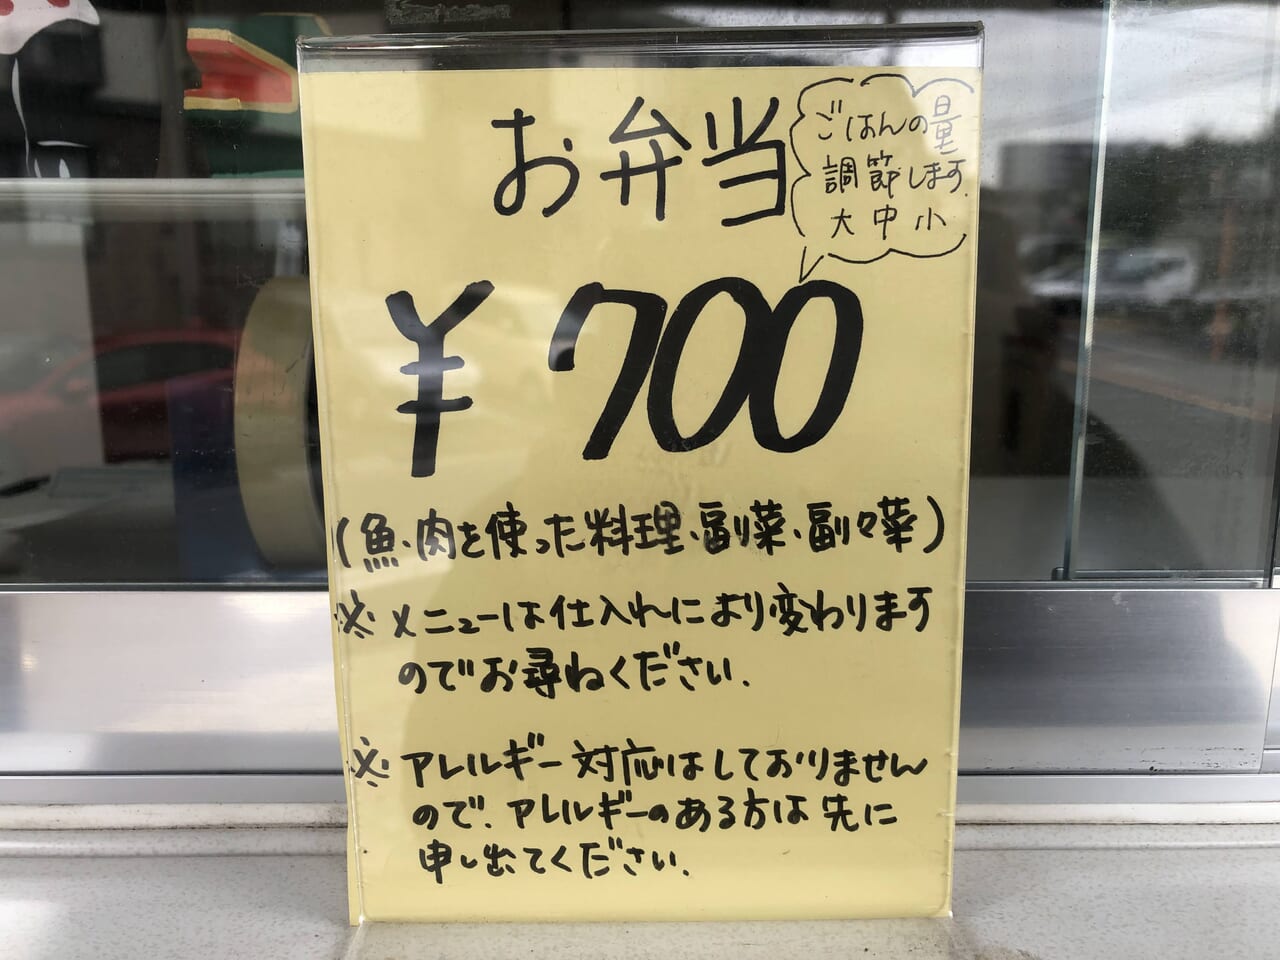 お弁当
ごはんの量
調節します.
大中小
¥700
(魚・肉を使った料理・副菜・副々菜)
※メニューは仕入れにより変わります
のでお尋ねください.
※アレルギー対応はしておりません
ので、アレルギーのある方は先に
申し出てください.